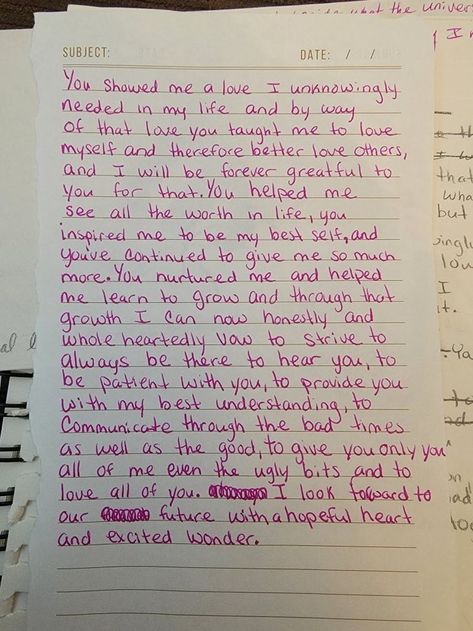 what the univer
SUBJECT: DATE: / /
You showed me a love I unknowingly
needed in my life and by way
of that love you taught me to love
myself and therefore better love others,
and I will be forever greatful to
you for that. You helped me
see all the worth in life, you
inspired me to be my best self, and
you've continued to give me so much
more. You nurtured me and helped
me learn to grow and through that
growth I can now honestly and
whole heartedly vow to strive to
always be there to hear you, to
be patient with you, to provide you
with my best understanding, to
communicate through the bad times
as well as the good, to give you only you
all of me even the ugly bits and to
love all of you. I look forward to
our future with a hopeful heart
and excited wonder.